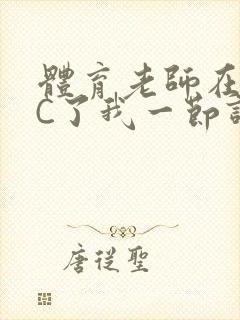 體育老師在
C了我一節
唐從聖